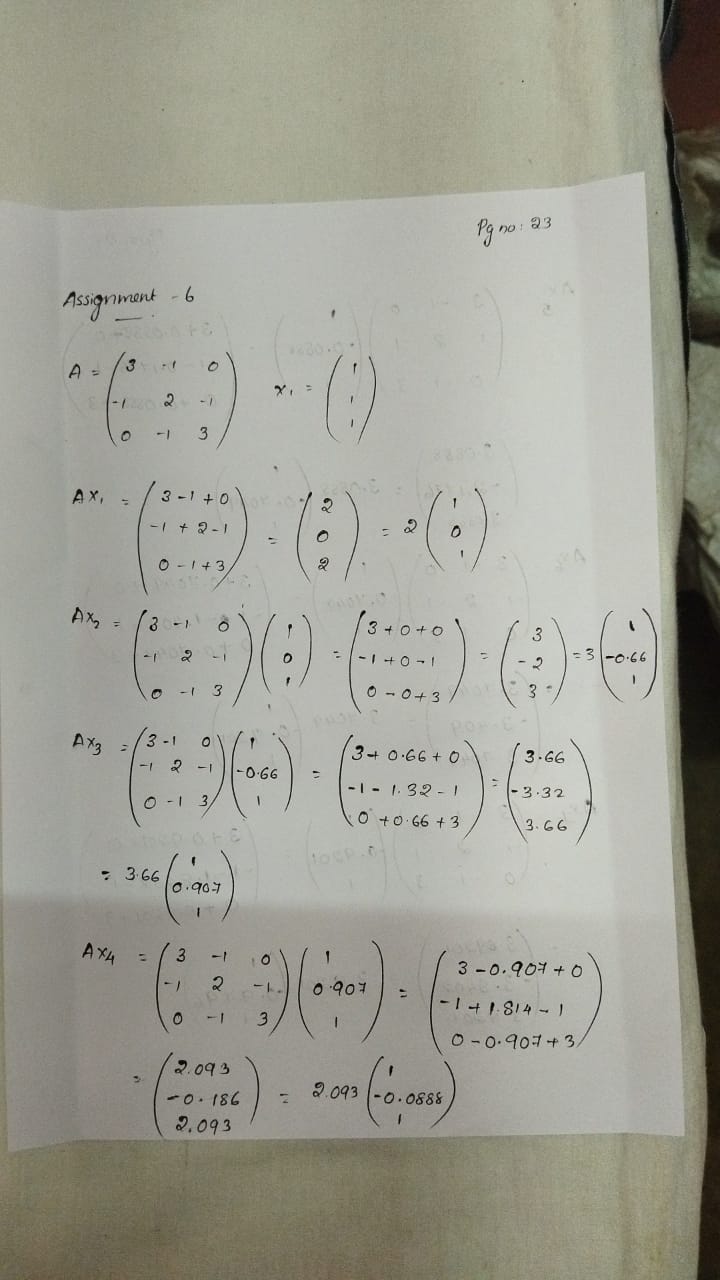 Pg no: 23
Assignment - 6
A = (3 -1 0
-1 2 -1
0 -1 3) x₁ = (1
1
1)
Ax₁ = (3-1+0
-1+2-1
0-1+3) = (2
0
2) = 2 (1
0
1)
Ax₂ = (3 -1 0
-1 2 -1
0 -1 3) (1
0
1) = (3+0+0
-1+0-1
0-0+3) = (3
-2
3) = 3 (1
-0.66
1)
Ax₃ = (3 -1 0
-1 2 -1
0 -1 3) (1
-0.66
1) = (3+0.66+0
-1-1.32-1
0+0.66+3) = (3.66
-3.32
3.66)
= 3.66 (1
0.907
1)
Ax₄ = (3 -1 0
-1 2 -1
0 -1 3) (1
0.907
1) = (3-0.907+0
-1+1.814-1
0-0.907+3)
= (2.093
-0.186
2.093) = 2.093 (1
-0.0888
1)